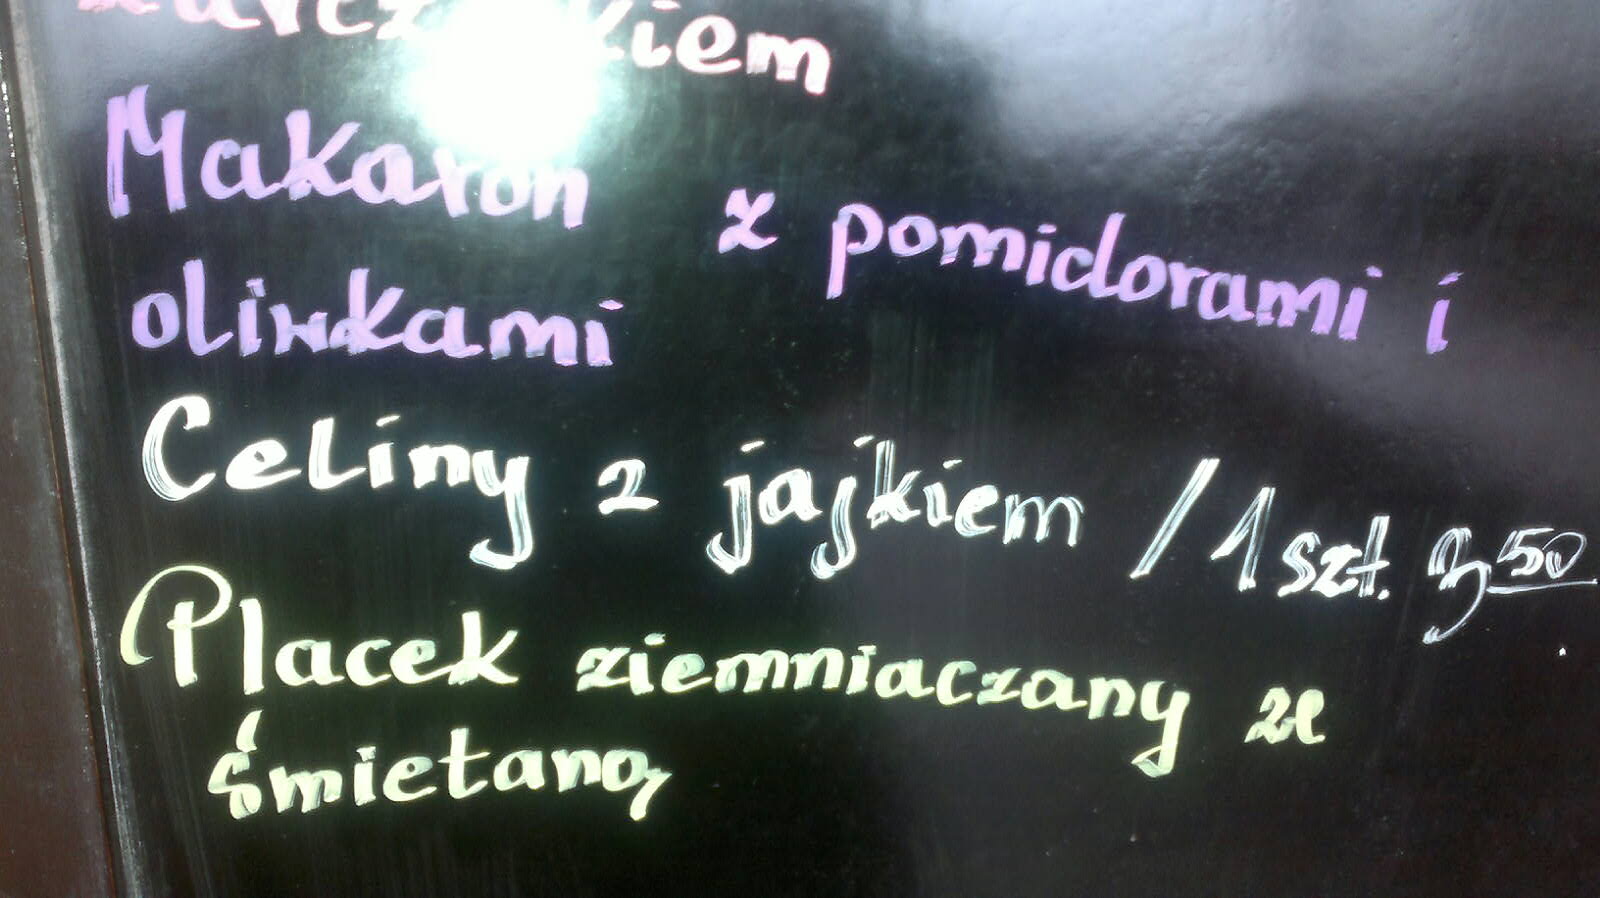 Makaron z pomidorami i
oliwkami
Celiny z jajkiem / 1 szt. 3 50
Placek ziemniaczany ze
śmietaną